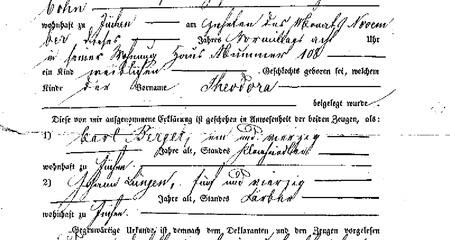 wohnhaft zu Jüchen am Zehnten des Monats Novem
ber dieses Jahres Vormittags acht Uhr
in seiner Wohnung Haus Nummer 108
ein Kind weiblichen Geschlechts geboren sei, welchem
Kinde der Vorname Theodora
beigelegt wurde.
Diese von mir aufgenommene Erklärung ist geschehen in Anwesenheit der beiden Zeugen, als:
1) Carl Berger, ein und vierzig
Jahre alt, Standes
wohnhaft zu Jüchen
2) Lüngen, fünf und vierzig
Jahre alt, Standes Färber
wohnhaft zu Jüchen.
Gegenwärtige Urkunde ist demnach dem Deklaranten und den Zeugen vorgelesen